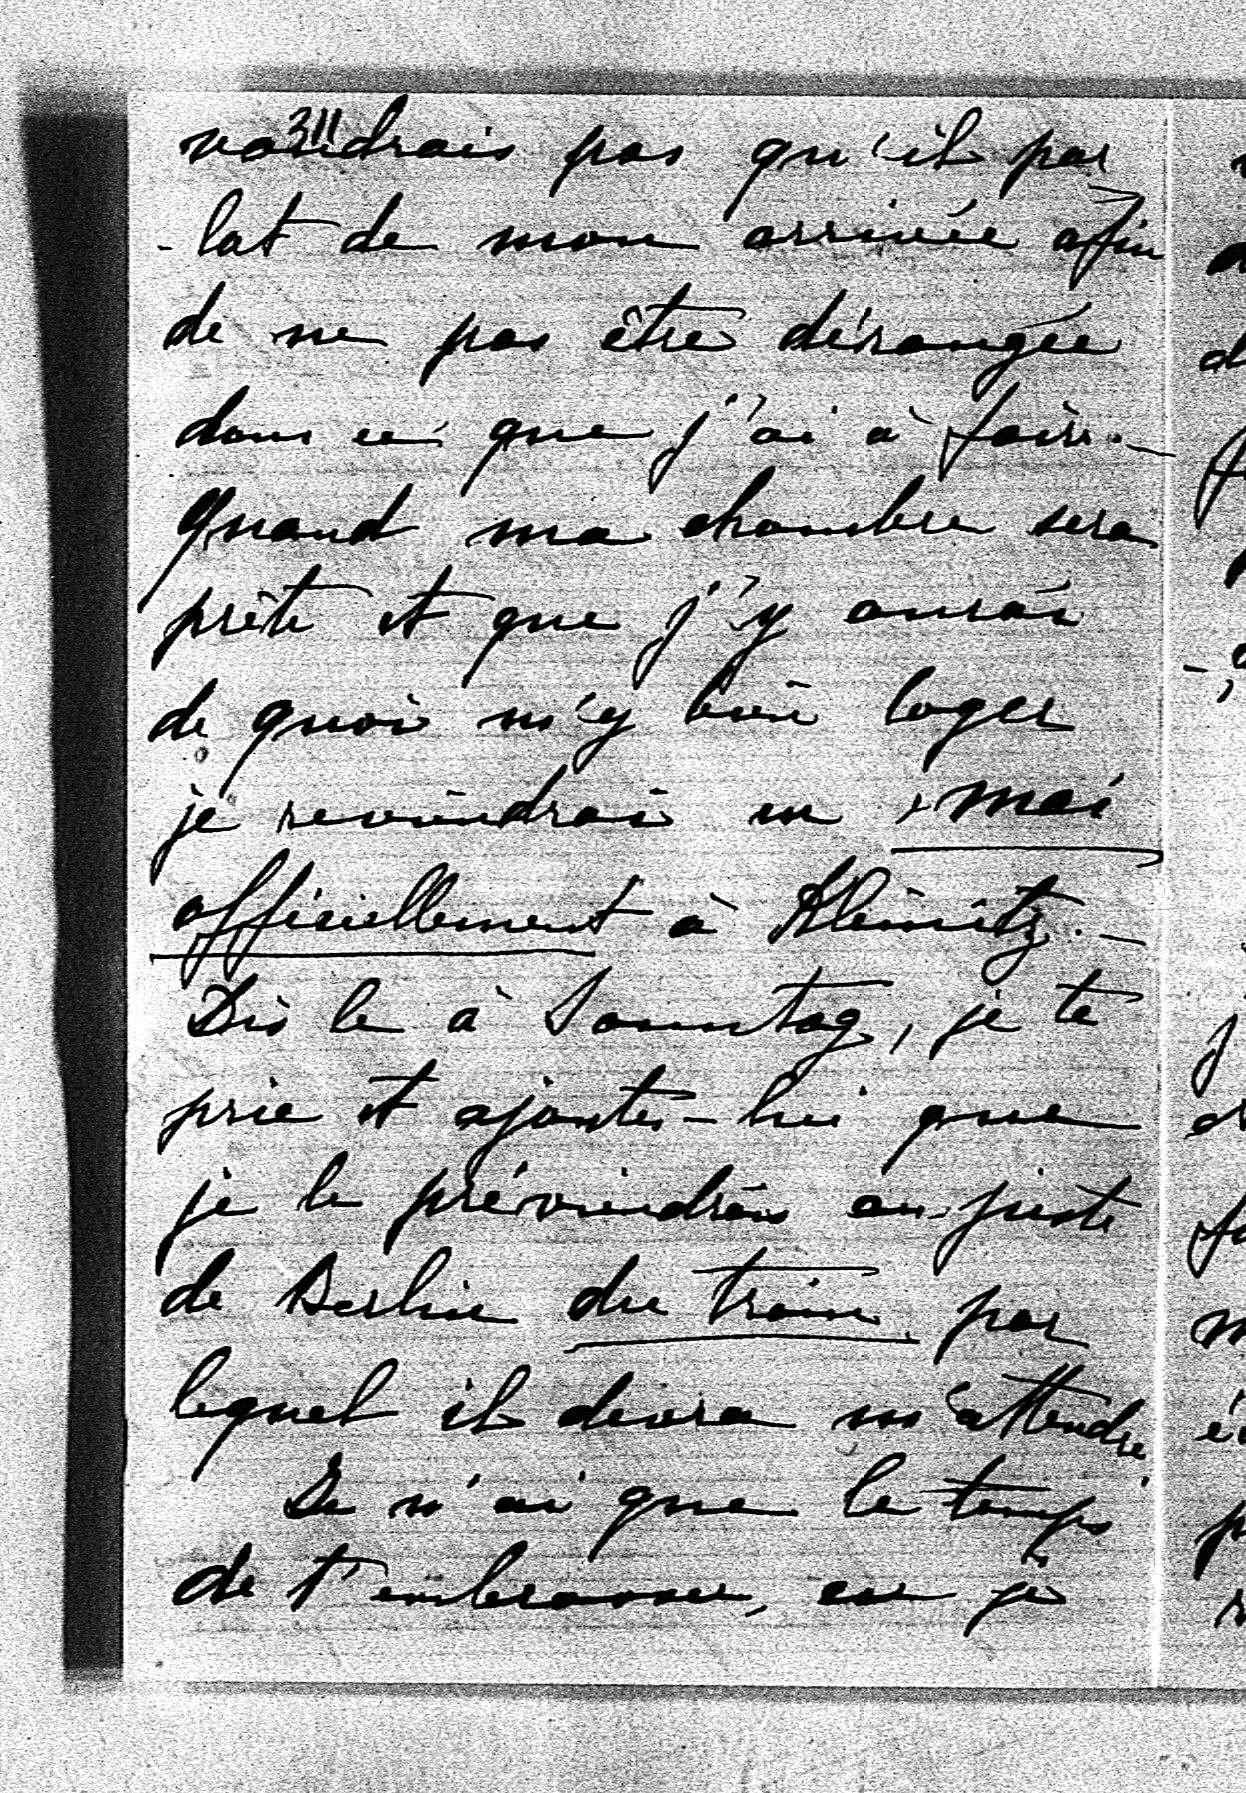 311
voudrais pas qu'il par
-lat de mon arrivée afin
de ne pas être dérangée
dans ce que j'ai à faire. —
Quand ma chambre sera
prête et que j'y aurai
de quoi m'y bien loger
je reviendrai en mai
officiellement à Kleinitz. —
Dis le à Sonntag, je te
prie et ajoutes-lui que
je le préviendrai au juste
de Berlin du train par
lequel il devra m'attendre
Je n'ai que le temps
de t'embrasser, car je